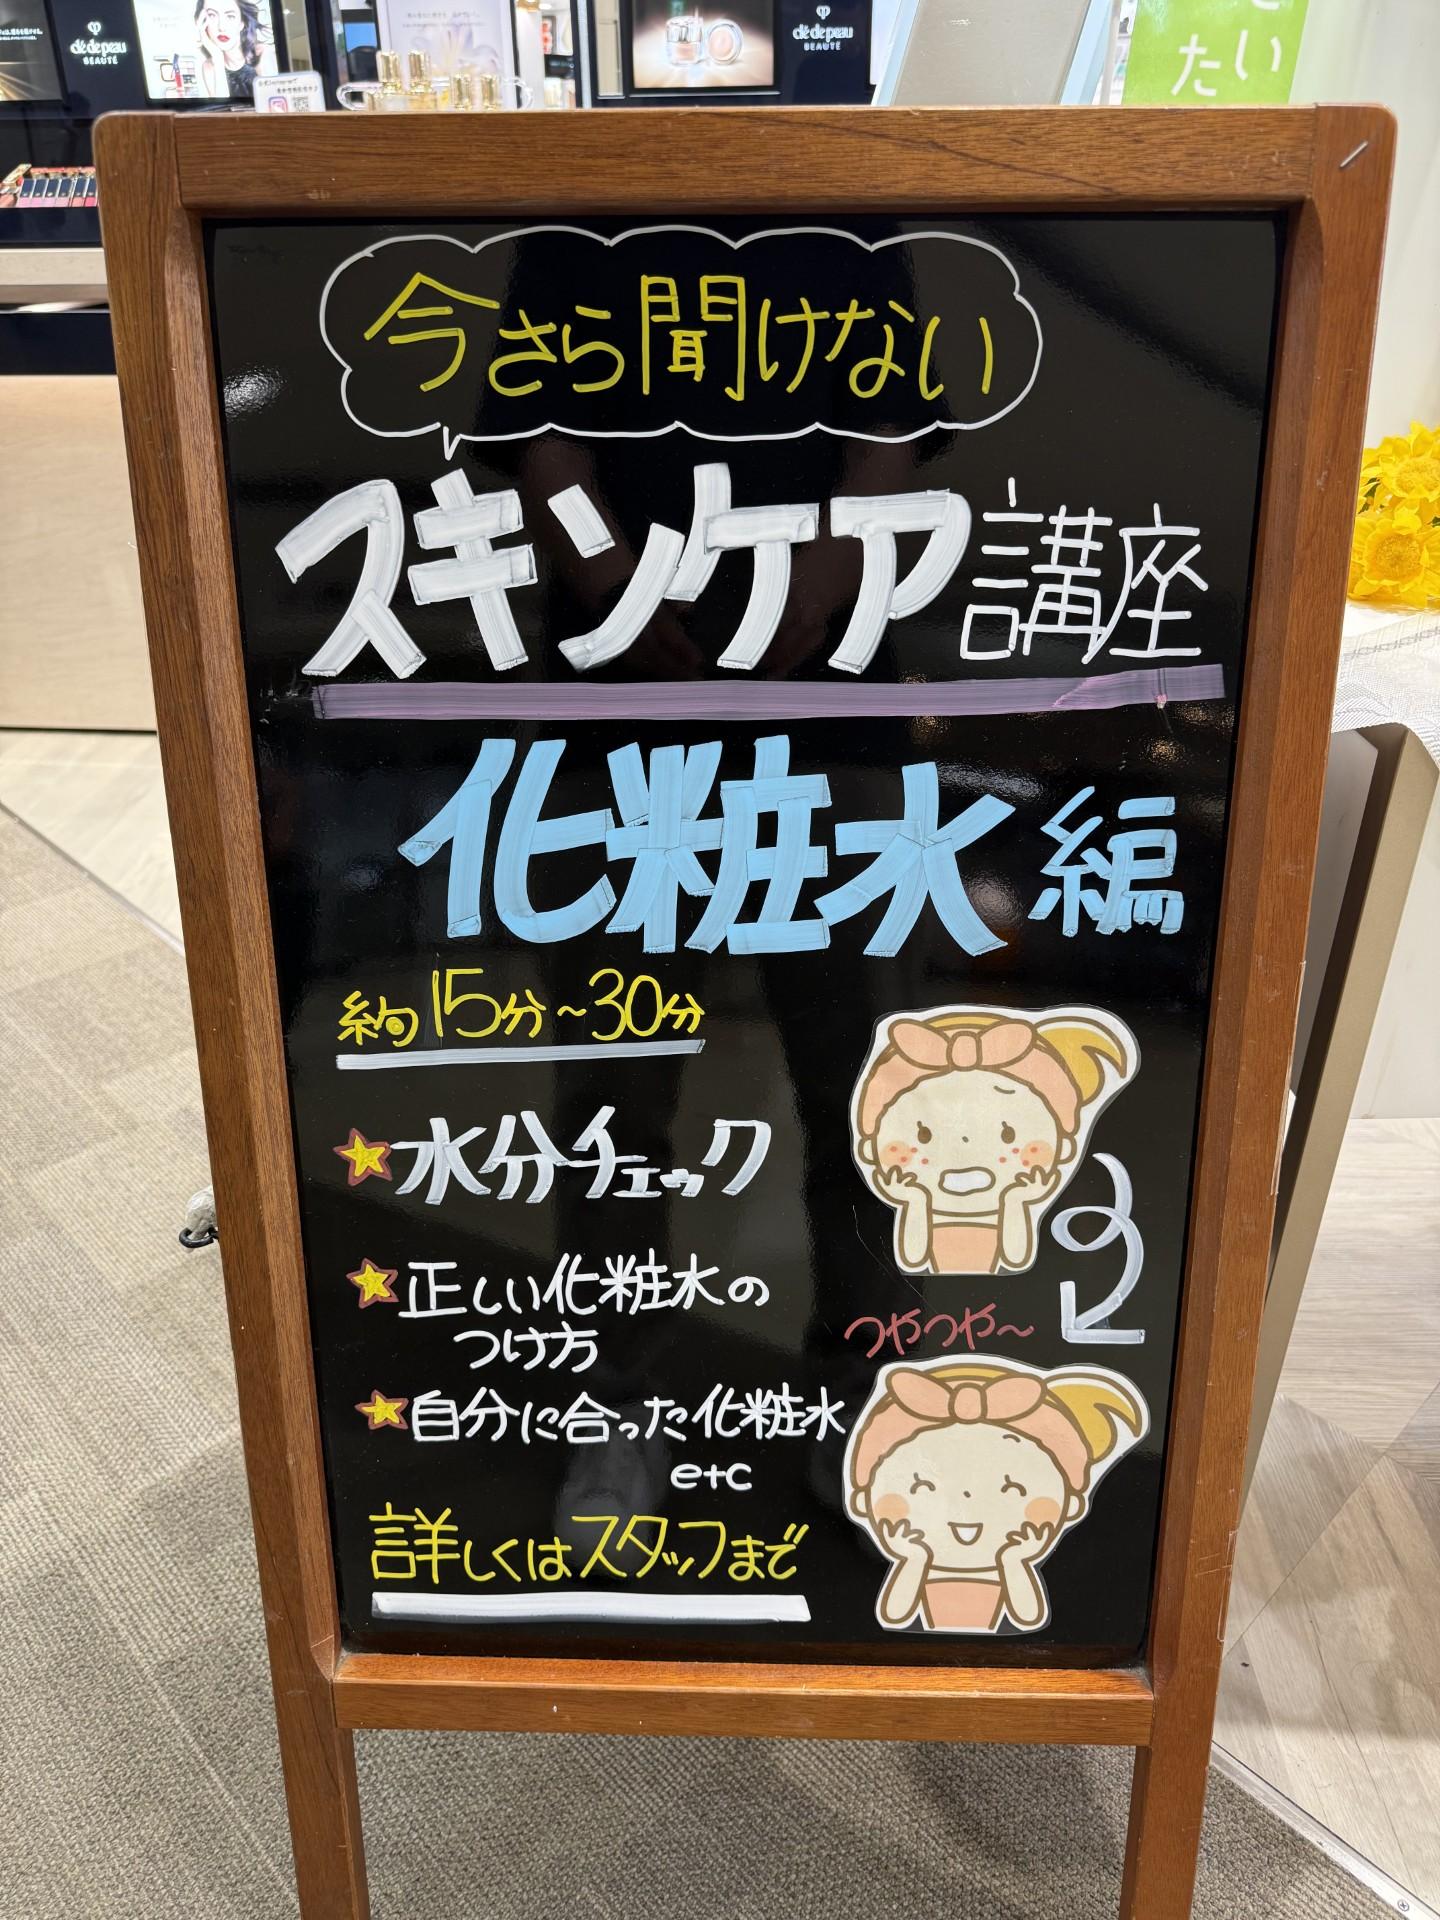 clé de peau
BEAUTÉ
clé de peau
BEAUTÉ
たい
今さら聞けない
スキンケア講座
化粧水編
約15分~30分
水分チェック
正しい化粧水の
つけ方
自分に合った化粧水
etc
つやつや~
詳しくはスタッフまで